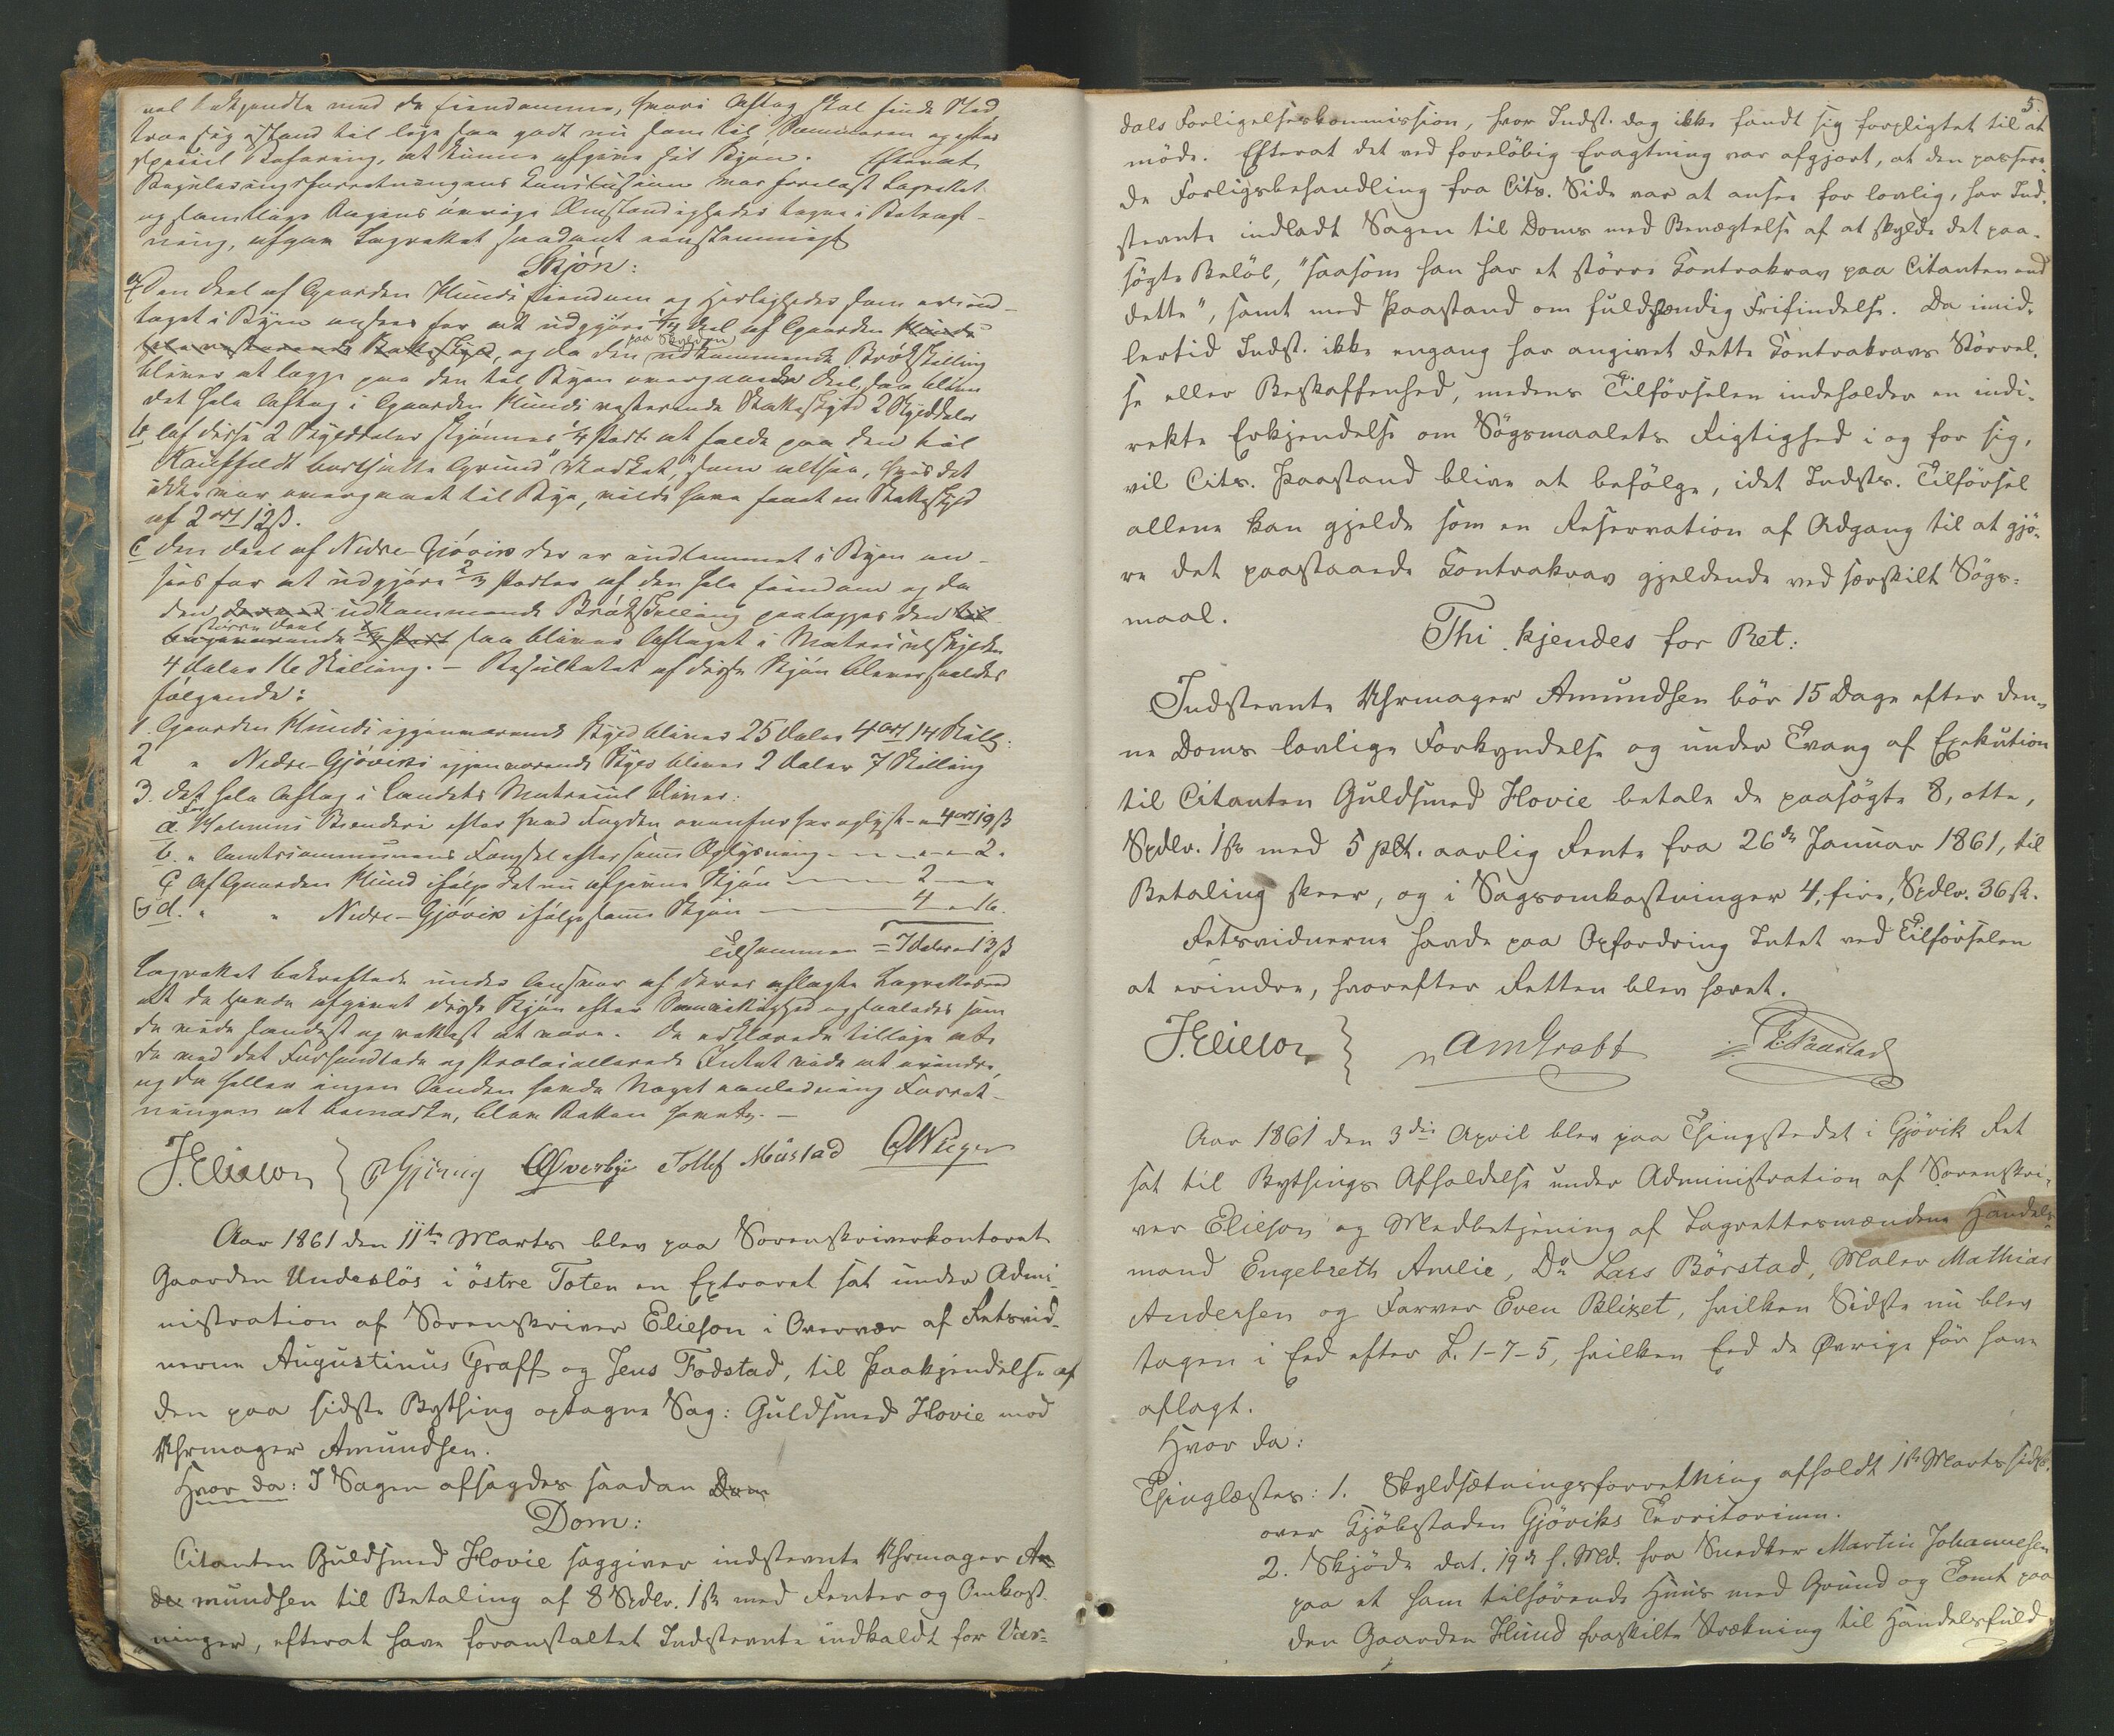 vel bekjendte med de Eiendomme, hvori Aftag skal finde Sted
troe sig istand til lige saa godt nu som til Sommeren og efter
speciel Befaring, at kunne afgive sit Skjøn. Efterat
Reguleringsforretningens Conclusion var forelæst Lagrettet
og samtlige Sagens øvrige Omstændigheder tagne i Betragt-
ning, afgav Lagrettet saadant eenstemmigt
Skjøn:
a Den Deel af Gaarden Hunds Eiendom og Herligheder som er ind-
taget i Byen ansees for at udgjøre 1/14 Deel af Gaarden Hunds
hele resterende Matr.Skyld, og da den paa Skylden udkommende Brøkskilling
bliver at lægge paa den til Byen overgaaede Deel, saa bliver
det hele Aftag i Gaarden Hunds resterende Matr.Skyld 2 Skylddaler
b. Af disse 2 Skylddaler skjønnes 1/4 Part at falde paa den til
Kauffeldt bortsatte Grund "Marken", som altsaa, hvis det
ikke var overgaaet til Bye, vilde have faaet en Matr.Skyld
af 2 ort 12 ß.
c Den Deel af Nedre-Gjøvik der er indlemmet i Byen an-
sees for at udgjøre 2/3 Parter af den hele Eiendom og da
den derved udkommende Brøkskilling paalægges den til-
bageværende større Deel saa bliver Aftaget i Matriculskylden
4 Daler 16 Skilling. - Resultatet af disse Skjøn bliver saaledes
følgende:
1. Gaarden Hunds igjenværende Skyld bliver 25 Daler 4 ort 14 Skill:
2 " Nedre-Gjøviks igjenværende Skyld bliver 2 Daler 7 Skilling
3. Det hele Aftag i Landets Matricul bliver:
a. For Holmens Brænderi efter hvad Fogden ovenfor har oplyst - " 4 ort 19 ß
b. " Amtscommunens Fængsel efter samme Oplysning - - - " - 2 "
c Af Gaarden Hund ifølge det nu afgivne Skjøn - - - 2 - "
d. " " Nedre-Gjøvik ifølge samme Skjøn - 4 " 16.
Tilsammen = 7 Daler 13 ß
Lagrettet bekræftede under Ansvar af deres aflagte Lagrettesed
at de havde afgivet disse Skjøn efter Samvittighed og saaledes som
de vidste sandest og rettest at være. De erklærede tillige at
de ved det Forhandlede og Protocollerede Intet vidste at erindre,
og da heller ingen Anden havde Noget i anledning Forret-
ningen at bemærke, blev Retten hævet. -
J. Elieson } Gjøvig Øverbye Tollef Mustad Wieger
Aar 1861 den 11te Marts blev paa Sorenskriverkontoret
Gaarden Undeslös i östre Toten en Extraret sat under Admi-
nistration af Sorenskriver Elieson i Overvær af Retsvid-
nerne Augustinus Graff og Jens Fodstad, til Paakjendelse af
den paa sidste Bything optagne Sag: Guldsmed Hovie mod
Uhrmager Amundsen.
Hvor da: I Sagen afsagdes saadan Dom
Dom:
Citanten Guldsmed Hovie saggiver indstevnte Uhrmager An
der mundsen til Betaling af 8 Spdlr. 1 ß med Renter og Omkost-
ninger, efterat have foranstaltet Indstevnte indkaldt for Var-
5.
dals Forligelseskommission, hvor Indst. dog ikke fandt sig forpligtet til at
möde. Efterat det ved foreløbig Eragtning var afgjort, at den passere-
de Forligsbehandling fra Cits. Side var at ansee for lovlig, har Ind-
stevnte indladt Sagen til Doms med Benægtelse af at skylde det paa-
søgte Beløb, "saasom han har et större Contrakrav paa Citanten end
dette", samt med Paastand om fuldstændig Frifindelse. Da imid-
lertid Indst. ikke engang har angivet dette Contrakravs Störrel-
se eller Beskaffenhed, medens Tilförselen indeholder en indi-
rekte Erkjendelse om Sögsmaalets Rigtighed i og for sig,
vil Cits. Paastand blive at befölge, idet Indsts. Tilförsel
allene kan gjelde som en Reservation af Adgang til at gjö-
re det paastaaede Contrakrav gjeldende ved særskilt Sögs-
maal.
Thi kjendes for Ret:
Indstevnte Uhrmager Amundsen bör 15 Dage efter den-
ne Doms lovlige Forkyndelse og under Tvang af Exekution
til Citanten Guldsmed Hovie betale de paasögte 8, otte,
Spdlr. 1 ß med 5 pCt. aarlig Rente fra 26de Januar 1861, til
Betaling skeer, og i Sagsomkostninger 4, fire, Spdlr. 36 ß.
Retsvidnerne havde paa Opfordring Intet ved Tilförselen
at erindre, hvorefter Retten blev hævet.
J. Elieson } A M Graff J. Faastad
Aar 1861 den 3die April blev paa Thingstedet i Gjövik Ret
sat til Bythings Afholdelse under Administration af Sorenskri-
ver Elieson og Medbetjening af Lagrettesmændene Handels-
mand Engebreth Amlie, Do Lars Börstad, Maler Mathias
Andersen og Farver Even Blixet, hvilken Sidste nu blev
tagen i Eed efter L. 1-7-5, hvilken Eed de Øvrige för have
aflagt.
Hvor da:
Thinglæstes: 1. Skyldsætningsforretning afholdt 1ste Marts sidst.
over Kjöbstaden Gjöviks Territorium.
2. Skjöde dat. 19de f. Md. fra Snedker Martin Johannesen
paa et ham tilhörende Huus med Grund og Tomt paa
den Gaarden Hund fraskilte Strækning til Handelsfuld-